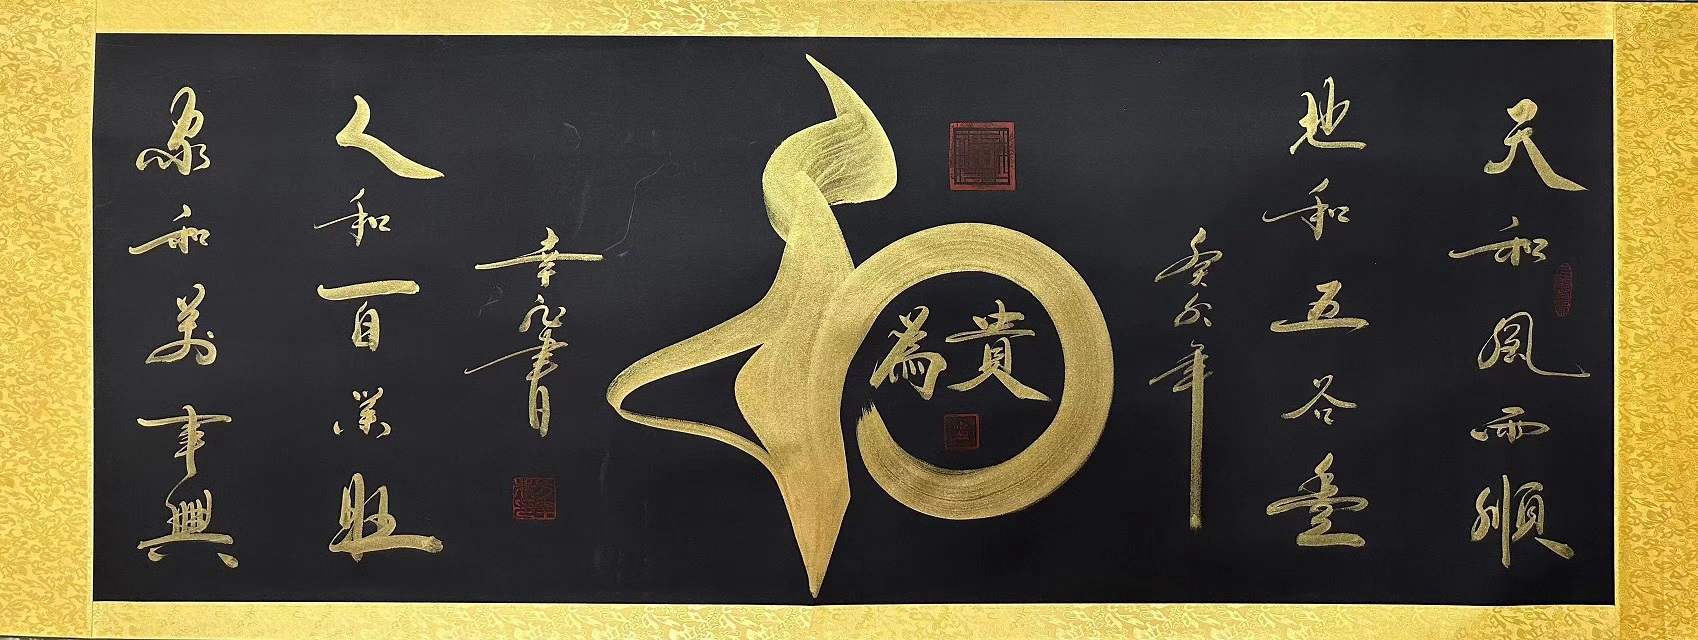 天和風雨順
地和五谷豐
癸卯年
和
為貴
人和百業旺
家和萬事興